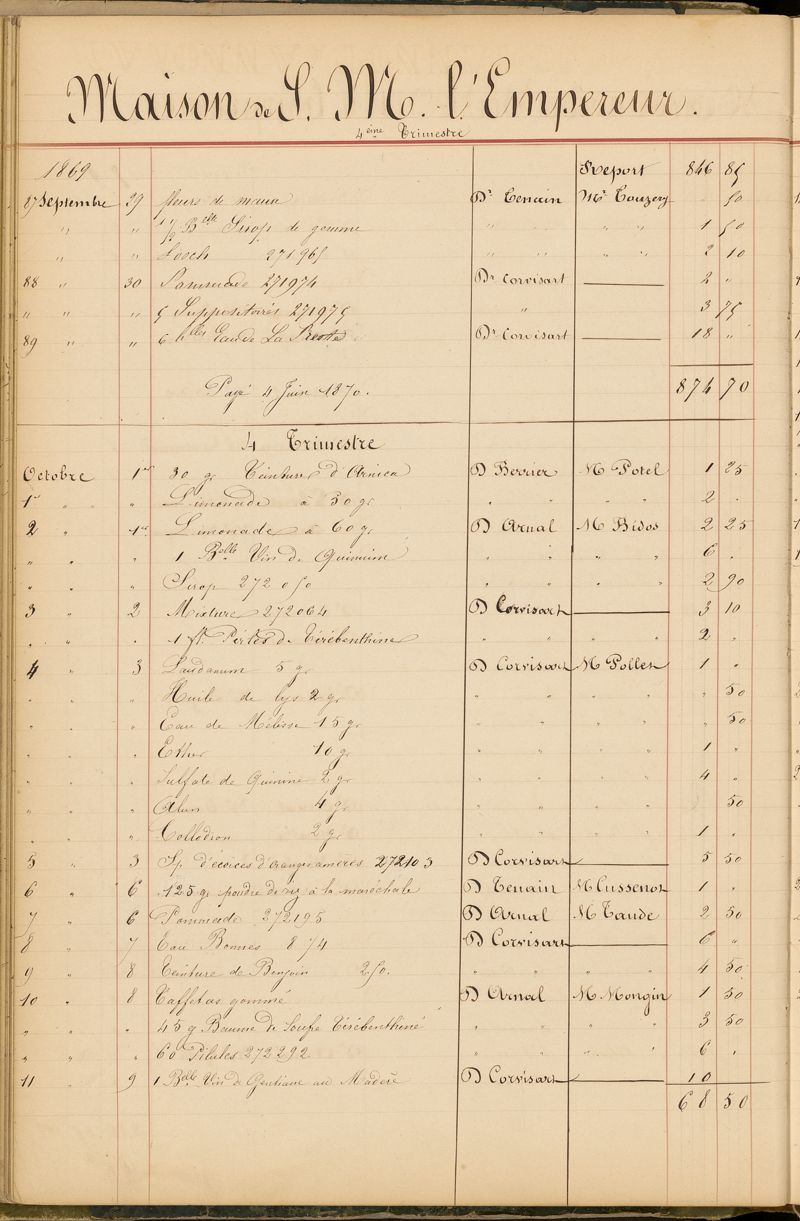 Maison de S. M. l'Empereur.
4eme Trimestre
1869 Report 846 85
87 Septembre 29 fleurs de mauve Dr Tenain Mr Touzery " 50
" " 1/2 Blle Sirop de gomme " " " " 1 50
" " Looch 271965 " " " " 2 10
88 " 30 Pommade 271974 Dr Corvisart 2 "
" " " 5 Suppositoires 271975 " 3 75
89 " " 6 blles Eau de La Dr Corvisart 18 "
874 70
Payé 4 Juin 1870.
4 Trimestre
Octobre 1er 30 gr Teinture d'Arnica D Berrier M Potel 1 25
1er " " Limonade à 50 gr " " " " 2 "
2 " 1er Limonade à 60 gr D Arnal M Bidos 2 25
" " " 1 Blle Vin de Quinium " " " " 6 "
" " " Sirop 272050 " " " " 2 90
3 " 2 Mixture 272064 D Corvisart 3 10
" " " 1 fl. Perles de Térébenthine " " " " 2 "
4 " 3 Laudanum 5 gr D Corvisart M Pollet 1 "
" " " Huile de lys 2 gr " " " " " 50
" " " Eau de Mélisse 15 gr " " " " " 50
" " " Ether 10 gr " " " " 1 "
" " " Sulfate de Quinine 2 gr " " " " 4 "
" " " Alun 4 gr " " " " 50
" " " Collodion 2 gr " " " " 1 "
5 " 3 Sp d'écorces d'oranges amères 272103 D Corvisart 5 50
6 " 6 125 gr poudre de riz à la maréchale D Tenain M Cussenot 1 "
7 " 6 Pommade 272195 D Arnal M Taude 2 50
8 " 7 Eau Bonnes 874 D Corvisart 6 "
9 " 8 Teinture de Benjoin 250. " " " " 4 50
10 " 8 Taffetas gommé D Arnal M Mongin 1 50
" " " 45 g Baume de Soufre Térébenthiné " " " " 3 50
" " " 60 Pilules 272292 " " " " 6 "
11 " 9 1 Blle Vin de Gentiane au Madère D Corvisart 10
68 50